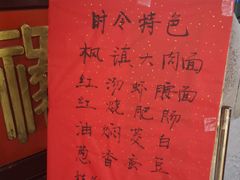 时令特色
枫镇大肉面
红汤虾腰面
红烧肥肠
油焖茭白
葱香蚕豆